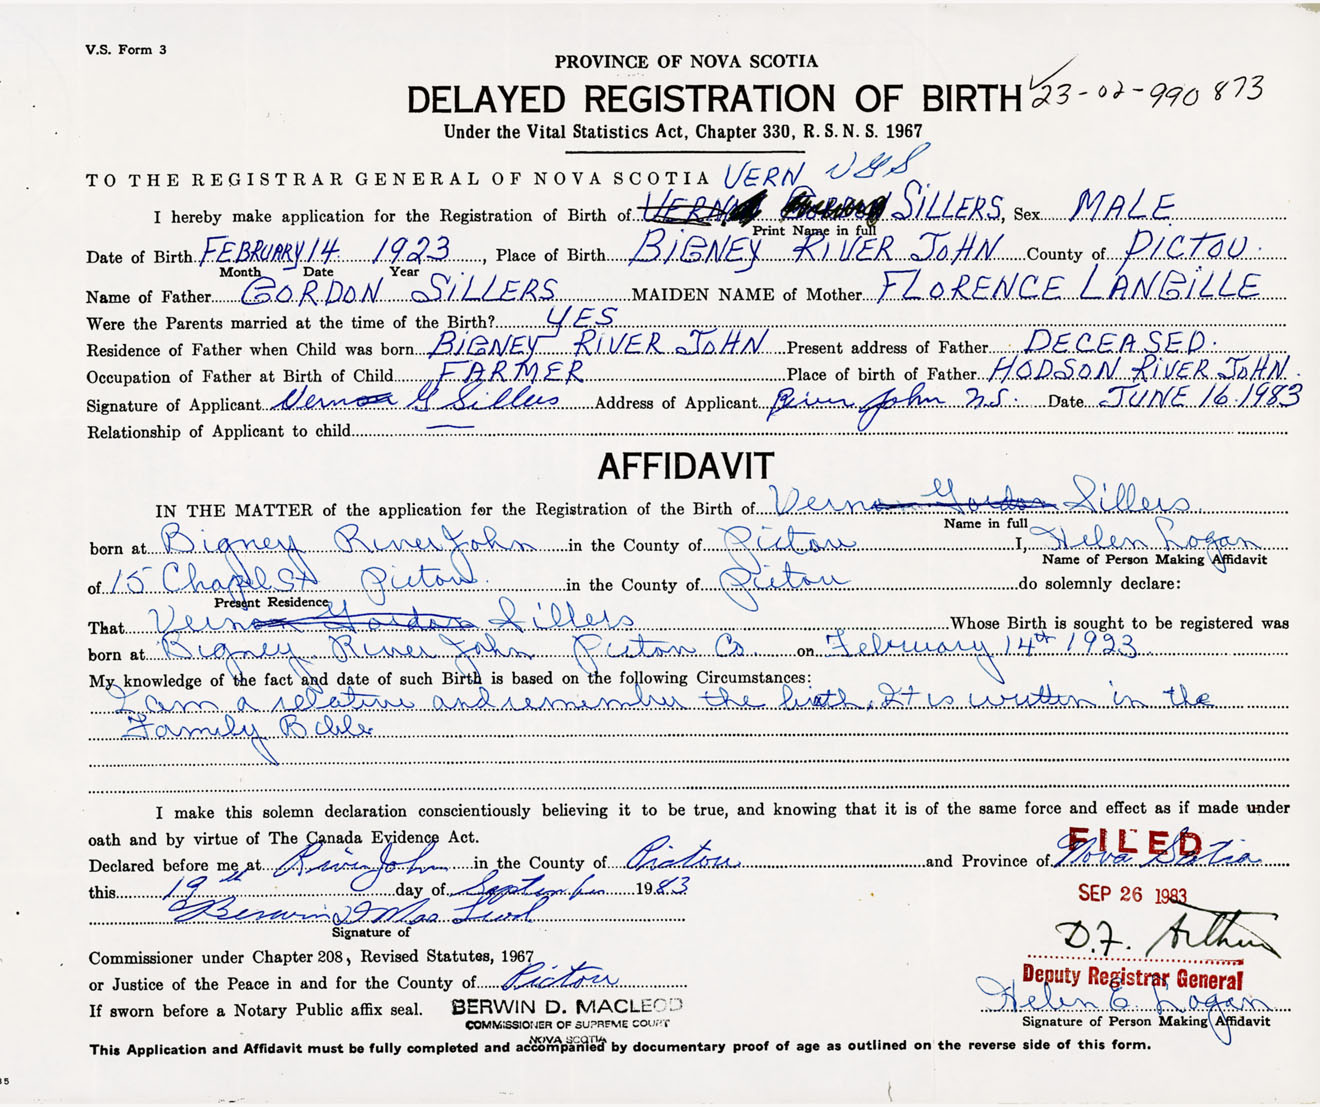 V.S. Form 3
PROVINCE OF NOVA SCOTIA
DELAYED REGISTRATION OF BIRTH 23-02-990873
Under the Vital Statistics Act, Chapter 330, R. S. N. S. 1967
TO THE REGISTRAR GENERAL OF NOVA SCOTIA VERN VGS
I hereby make application for the Registration of Birth of VERN SILLERS, Sex MALE
Print Name in full
Date of Birth FEBRUARY 14 1923, Place of Birth BIGNEY RIVER JOHN County of PICTOU.
Month Date Year
Name of Father GORDON SILLERS MAIDEN NAME of Mother FLORENCE LANGILLE
Were the Parents married at the time of the Birth? YES
Residence of Father when Child was born BIGNEY RIVER JOHN Present address of Father DECEASED.
Occupation of Father at Birth of Child FARMER Place of birth of Father HODSON RIVER JOHN.
Signature of Applicant Vernon G Sillers Address of Applicant River John N.S. Date JUNE 16.1983
Relationship of Applicant to child —
AFFIDAVIT
IN THE MATTER of the application for the Registration of the Birth of Vernon Gordon Sillers.
Name in full
born at Bigney River John in the County of Pictou I, Helen Logan
Name of Person Making Affidavit
of 15 Chapel St Pictou. in the County of Pictou do solemnly declare:
Present Residence
That Vernon Gordon Sillers Whose Birth is sought to be registered was
born at Bigney River John Pictou Co. on February 14th 1923
My knowledge of the fact and date of such Birth is based on the following Circumstances:
I am a relative and remember the birth, It is written in the
Family Bible
I make this solemn declaration conscientiously believing it to be true, and knowing that it is of the same force and effect as if made under
oath and by virtue of The Canada Evidence Act.
FILED
Declared before me at River John in the County of Pictou and Province of Nova Scotia
this 19th day of September 1983
SEP 26 1983
Berwin D MacLeod
Signature of
D.F. Arthur
Commissioner under Chapter 208, Revised Statutes, 1967
or Justice of the Peace in and for the County of Pictou
Deputy Registrar General
Helen E. Logan
If sworn before a Notary Public affix seal. BERWIN D. MACLEOD
COMMISSIONER OF SUPREME COURT
NOVA SCOTIA
Signature of Person Making Affidavit
This Application and Affidavit must be fully completed and accompanied by documentary proof of age as outlined on the reverse side of this form.